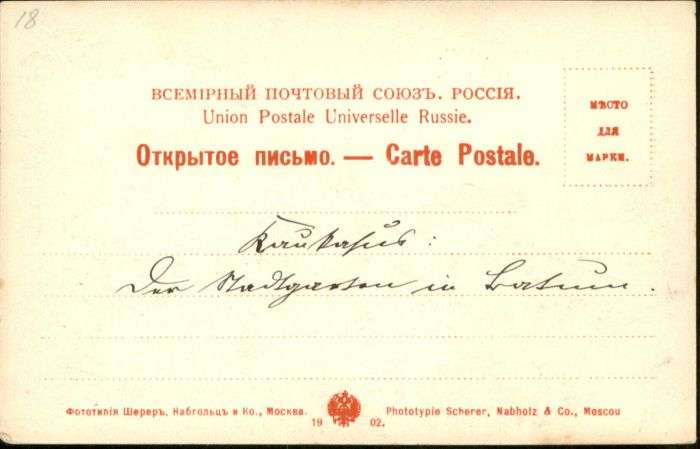 18
ВСЕМІРНЫЙ ПОЧТОВЫЙ СОЮЗЪ. РОССІЯ.
Union Postale Universelle Russie.
Открытое письмо. — Carte Postale.
МѢСТО
ДЛЯ
МАРКИ.
Kaukasus:
Der Stadtgarten in Batum.
Фототипія Шереръ, Набгольцъ и Ко., Москва.
1902.
Phototypie Scherer, Nabholz & Co., Moscou